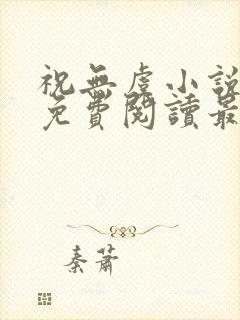 祝無虞小說
免費閱讀最
秦蕭